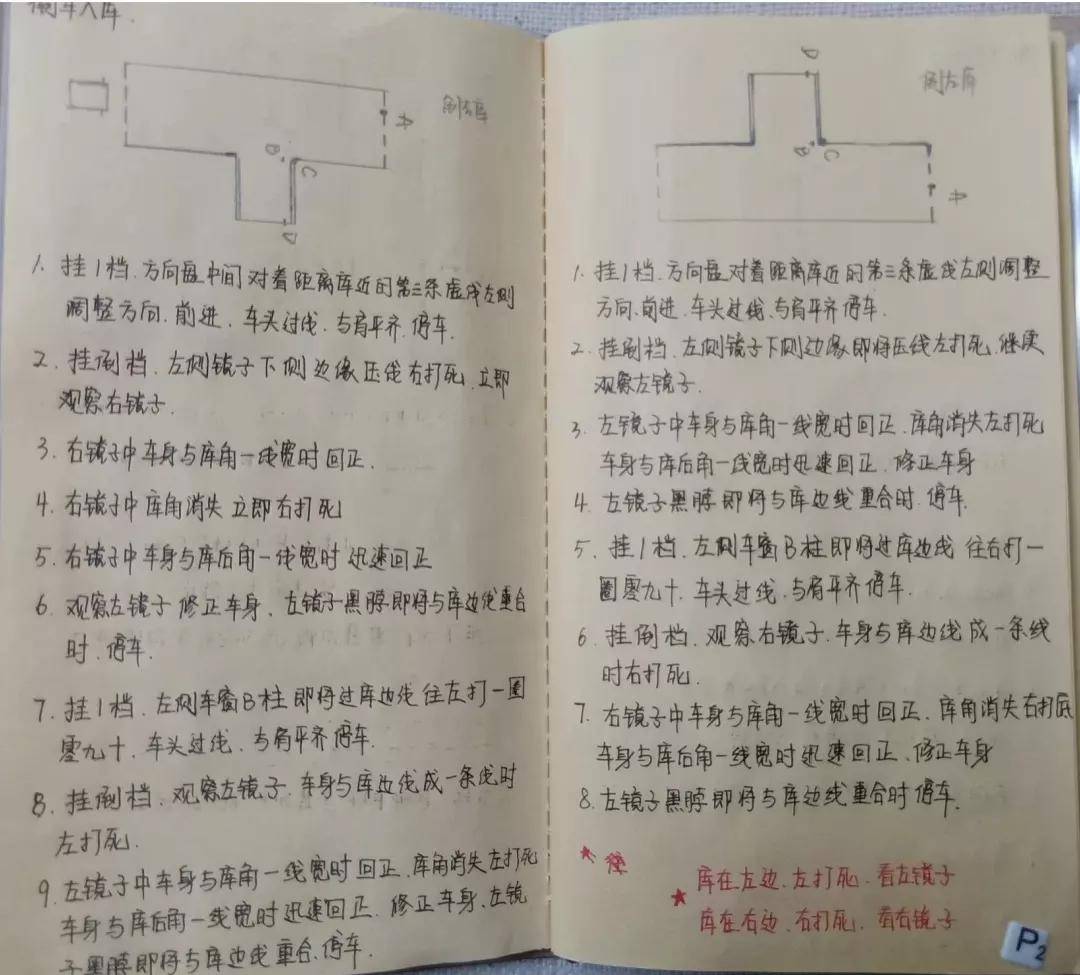 倒车入库
倒右库
A
B
C
D
1. 挂1档、方向盘中间对着距离库近的第三条虚线左侧
调整方向、前进、车头过线、与肩平齐、停车.
2. 挂倒档、左侧镜子下侧边缘压线右打死、立即
观察右镜子.
3. 右镜子中车身与库角一线宽时回正.
4. 右镜子中库角消失立即右打死
5. 右镜子中车身与库后角一线宽时迅速回正
6. 观察左镜子修正车身、左镜子黑膜即将与库边线重合
时、停车.
7. 挂1档、左侧车窗B柱即将过库边线往左打一圈
零九十、车头过线、与肩平齐停车.
8. 挂倒档、观察左镜子、车身与库边线成一条线时
左打死.
9. 左镜子中车身与库角一线宽时回正、库角消失左打死
车身与库后角一线宽时迅速回正、修正车身、左镜
子黑膜即将与库边线重合、停车.
D
倒左库
B
C
A
1. 挂1档、方向盘对着距离库近的第三条虚线左侧调整
方向、前进、车头过线、与肩平齐停车.
2. 挂倒档、左侧镜子下侧边缘即将压线左打死、继续
观察左镜子.
3. 左镜子中车身与库角一线宽时回正、库角消失左打死
车身与库后角一线宽时迅速回正、修正车身
4. 左镜子黑膜即将与库边线重合时、停车.
5. 挂1档、左侧车窗B柱即将过库边线往右打一
圈零九十、车头过线、与肩平齐停车.
6. 挂倒档、观察右镜子、车身与库边线成一条线
时右打死.
7. 右镜子中车身与库角一线宽时回正、库角消失右打底
车身与库后角一线宽时迅速回正、修正车身
8. 左镜子黑膜即将与库边线重合时停车.
库在左边、左打死、看左镜子
库在右边、右打死、看右镜子
P2